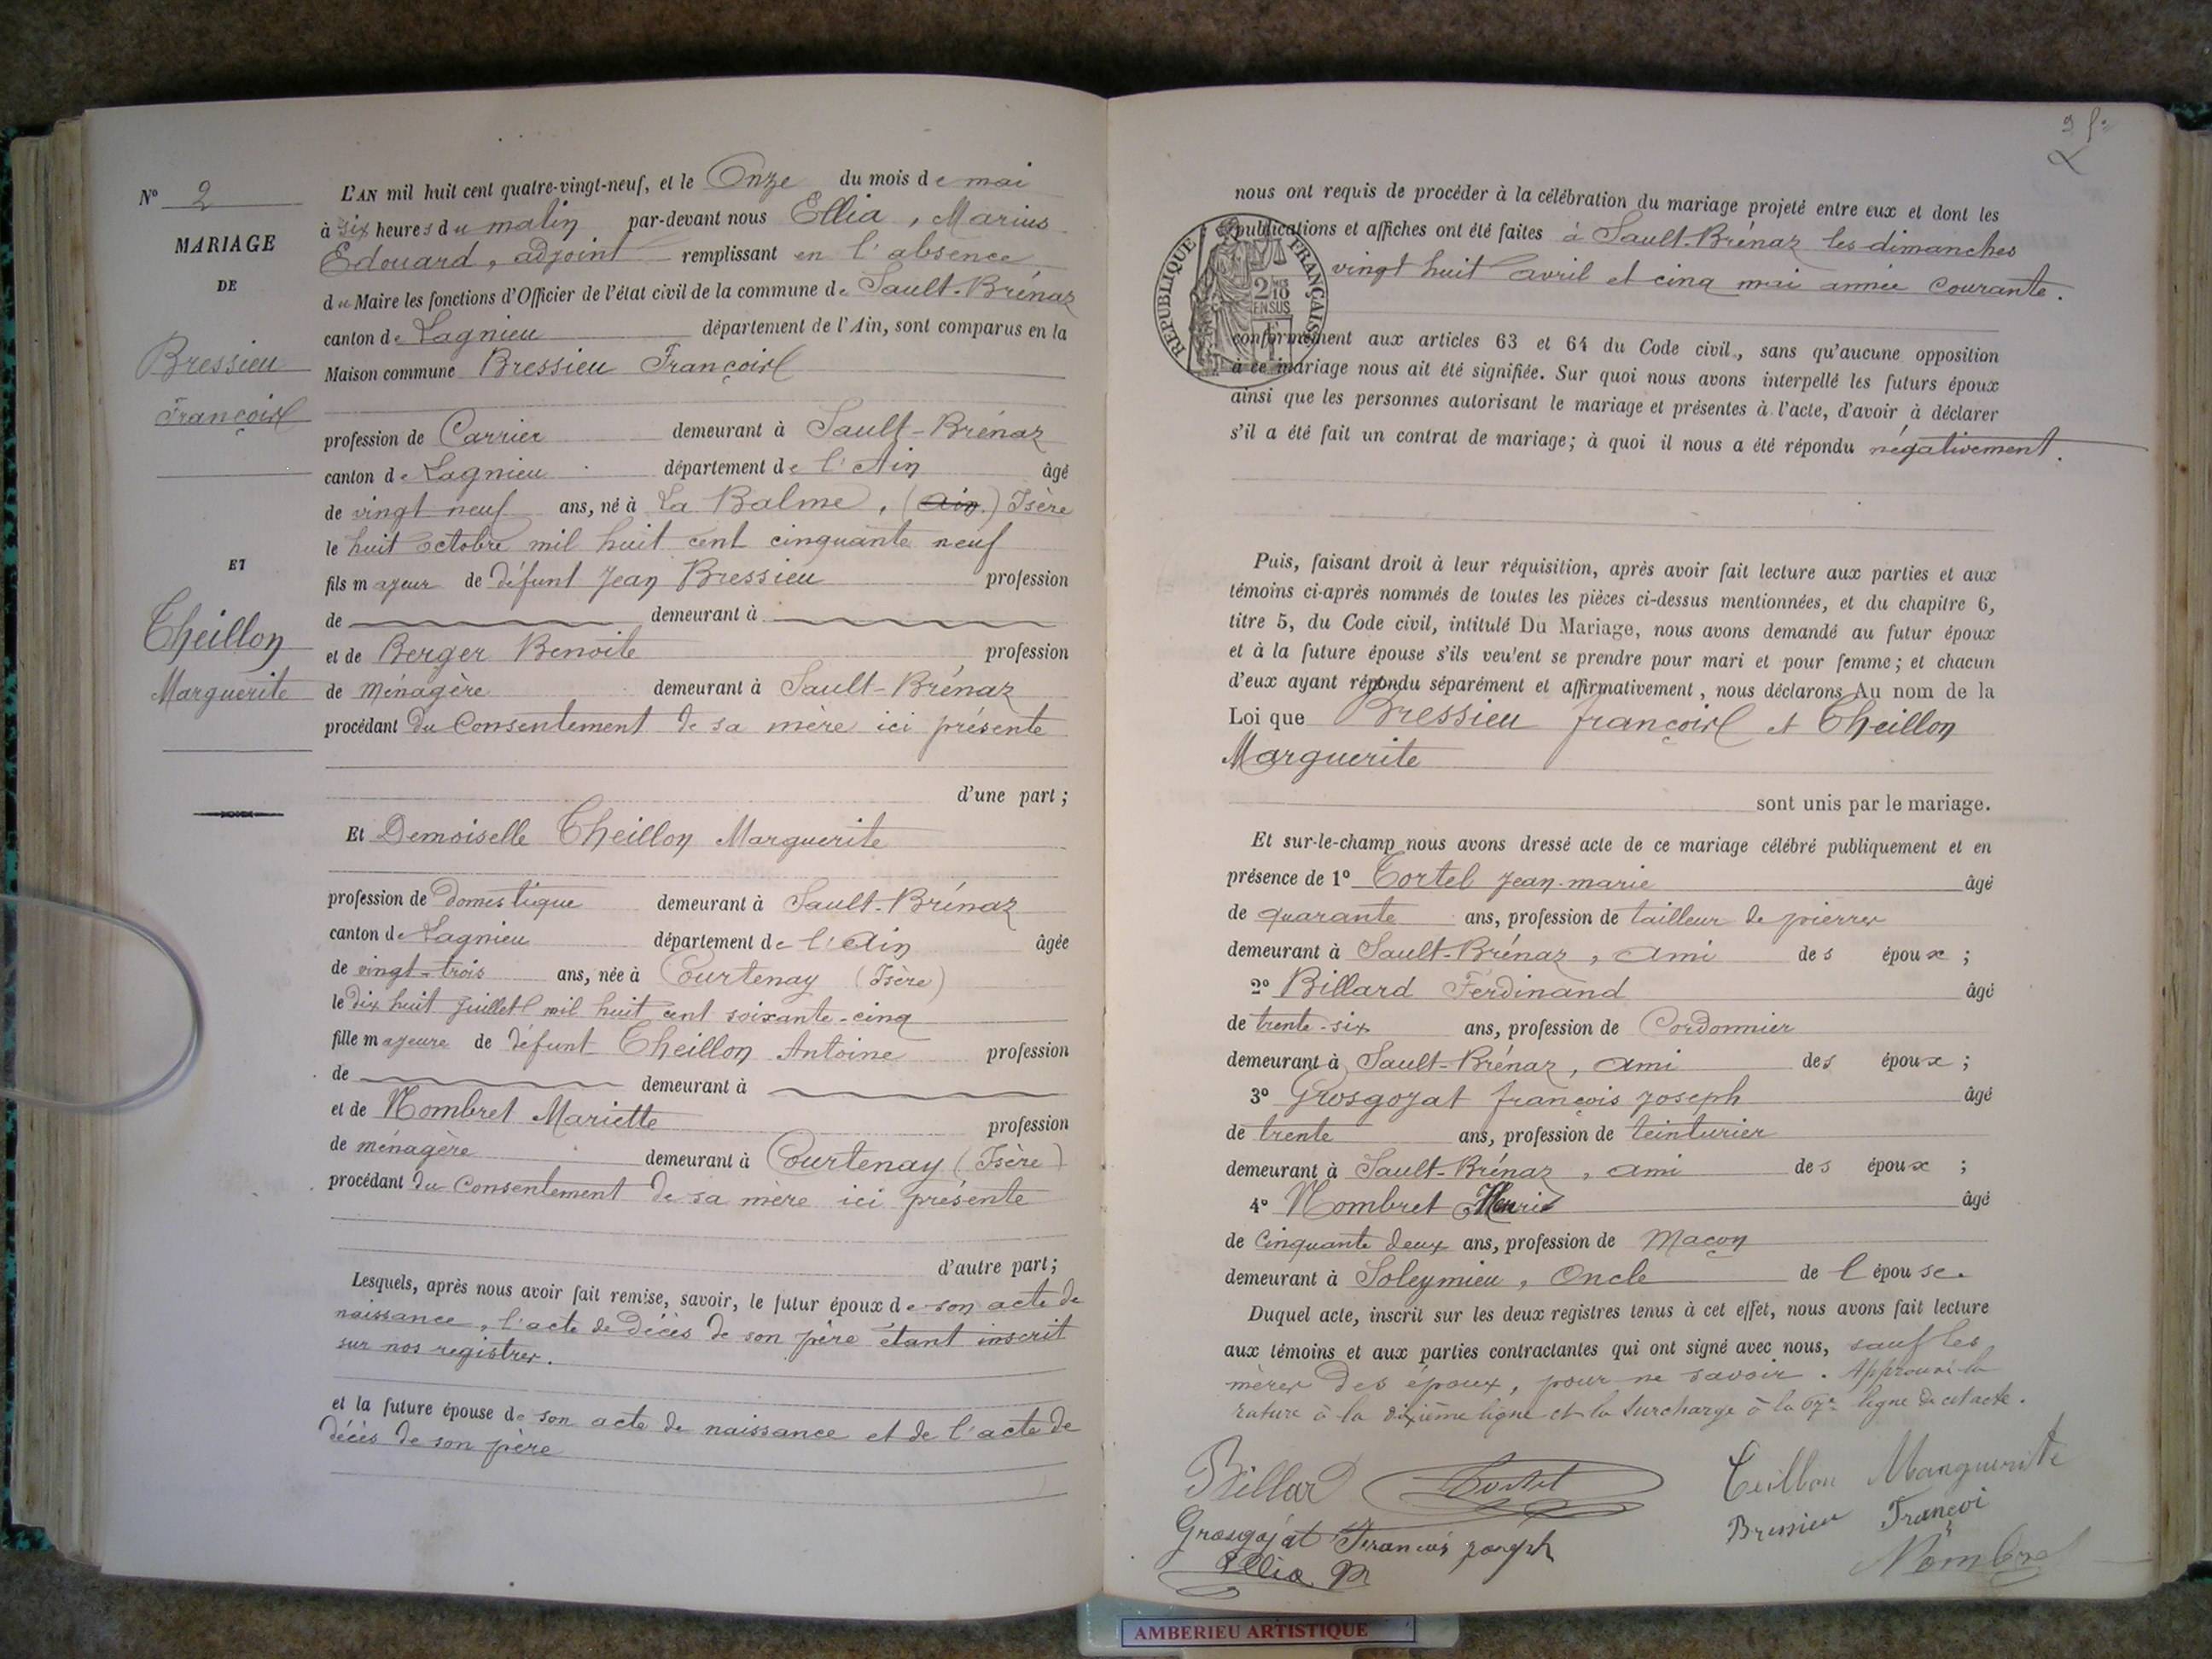 N° 2
MARIAGE
DE
Bressieu
François
ET
Theillon
Marguerite
L'AN mil huit cent quatre-vingt-neuf, et le Onze du mois de mai
à six heures du matin par-devant nous Ellia, Marius
Edouard, adjoint remplissant en l'absence
du Maire les fonctions d'Officier de l'état civil de la commune de Sault-Brénaz
canton de Lagnieu département de l'Ain, sont comparus en la
Maison commune Bressieu François
profession de Carrier demeurant à Sault-Brénaz
canton de Lagnieu département de l'Ain âgé
de vingt neuf ans, né à La Balme, (Ain) Isère
le huit octobre mil huit cent cinquante neuf
fils majeur de défunt Jean Bressieu profession
de demeurant à
et de Berger Benoite profession
de Ménagère demeurant à Sault-Brénaz
procédant du Consentement de sa mère ici présente
d'une part;
Et Demoiselle Theillon Marguerite
profession de domestique demeurant à Sault-Brénaz
canton de Lagnieu département de l'Ain âgée
de vingt-trois ans, née à Courtenay (Isère)
le dix huit Juillet mil huit cent soixante-cinq
fille majeure de défunt Theillon Antoine profession
de demeurant à
et de Nombret Mariette profession
de ménagère demeurant à Courtenay (Isère)
procédant du Consentement de sa mère ici présente
d'autre part;
Lesquels, après nous avoir fait remise, savoir, le futur époux de son acte de
naissance, l'acte de décès de son père étant inscrit
sur nos registres.
et la future épouse de son acte de naissance et de l'acte de
décès de son père
nous ont requis de procéder à la célébration du mariage projeté entre eux et dont les
publications et affiches ont été faites à Sault-Brénaz les dimanches
vingt huit avril et cinq mai année courante.
REPUBLIQUE FRANÇAISE
2/10 EN SUS
conformément aux articles 63 et 64 du Code civil, sans qu'aucune opposition
à ce mariage nous ait été signifiée. Sur quoi nous avons interpellé les futurs époux
ainsi que les personnes autorisant le mariage et présentes à l'acte, d'avoir à déclarer
s'il a été fait un contrat de mariage; à quoi il nous a été répondu négativement.
Puis, faisant droit à leur réquisition, après avoir fait lecture aux parties et aux
témoins ci-après nommés de toutes les pièces ci-dessus mentionnées, et du chapitre 6,
titre 5, du Code civil, intitulé Du Mariage, nous avons demandé au futur époux
et à la future épouse s'ils veulent se prendre pour mari et pour femme; et chacun
d'eux ayant répondu séparément et affirmativement, nous déclarons Au nom de la
Loi que Bressieu françois et Theillon
Marguerite
sont unis par le mariage.
Et sur-le-champ nous avons dressé acte de ce mariage célébré publiquement et en
présence de 1° Tortel Jean-marie âgé
de quarante ans, profession de tailleur de pierres
demeurant à Sault-Brénaz, ami des époux;
2° Billard Ferdinand âgé
de trente-six ans, profession de Cordonnier
demeurant à Sault-Brénaz, ami des époux;
3° Grosgojat françois Joseph âgé
de trente ans, profession de teinturier
demeurant à Sault-Brénaz, ami des époux;
4° Nombret Henri âgé
de Cinquante deux ans, profession de Maçon
demeurant à Soleymieu, Oncle de l'épouse.
Duquel acte, inscrit sur les deux registres tenus à cet effet, nous avons fait lecture
aux témoins et aux parties contractantes qui ont signé avec nous, sauf les
mères des époux, pour ne savoir. Approuvé la
rature à la dixième ligne et la surcharge à la ligne de cet acte.
Billard Tortel Teillon Marguerite
Grosgojat François Joseph Bressieu Françoi
Ellia M Nombret
AMBERIEU ARTISTIQUE